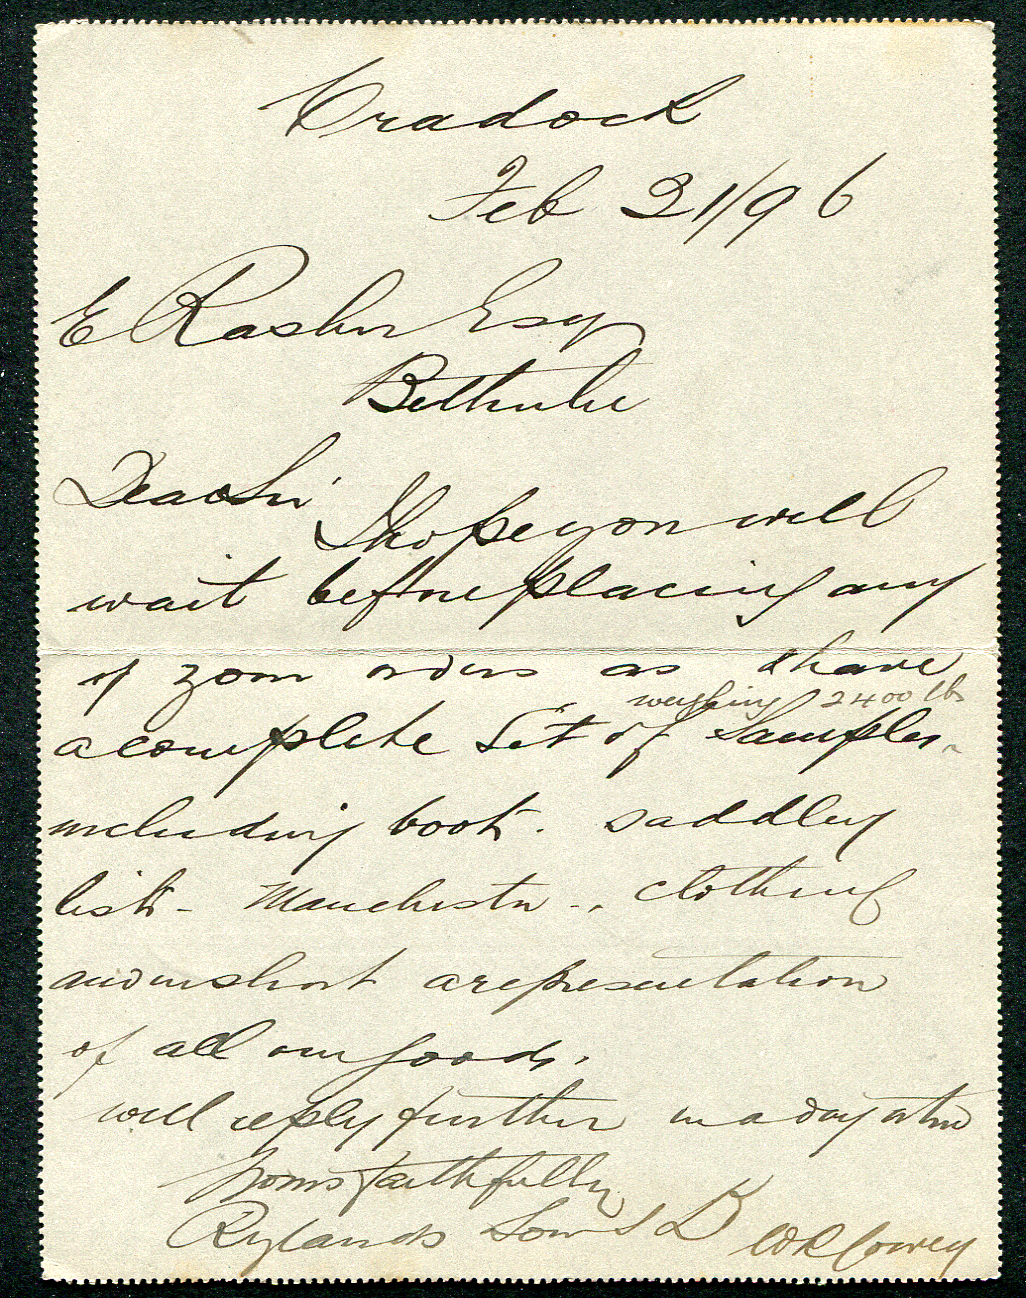 Cradock
Feb 21/96
E Rashn Esq
Bethulie
Dear Sir
I hope you will
wait before placing any
of your orders as I have
weighing 2400 lbs
a complete Set of Samples
including boots. saddlery
list - Manchester -. clothing
and in short a representation
of all our goods.
will reply further in a day or two
Yours faithfully
Rylands Sons & D